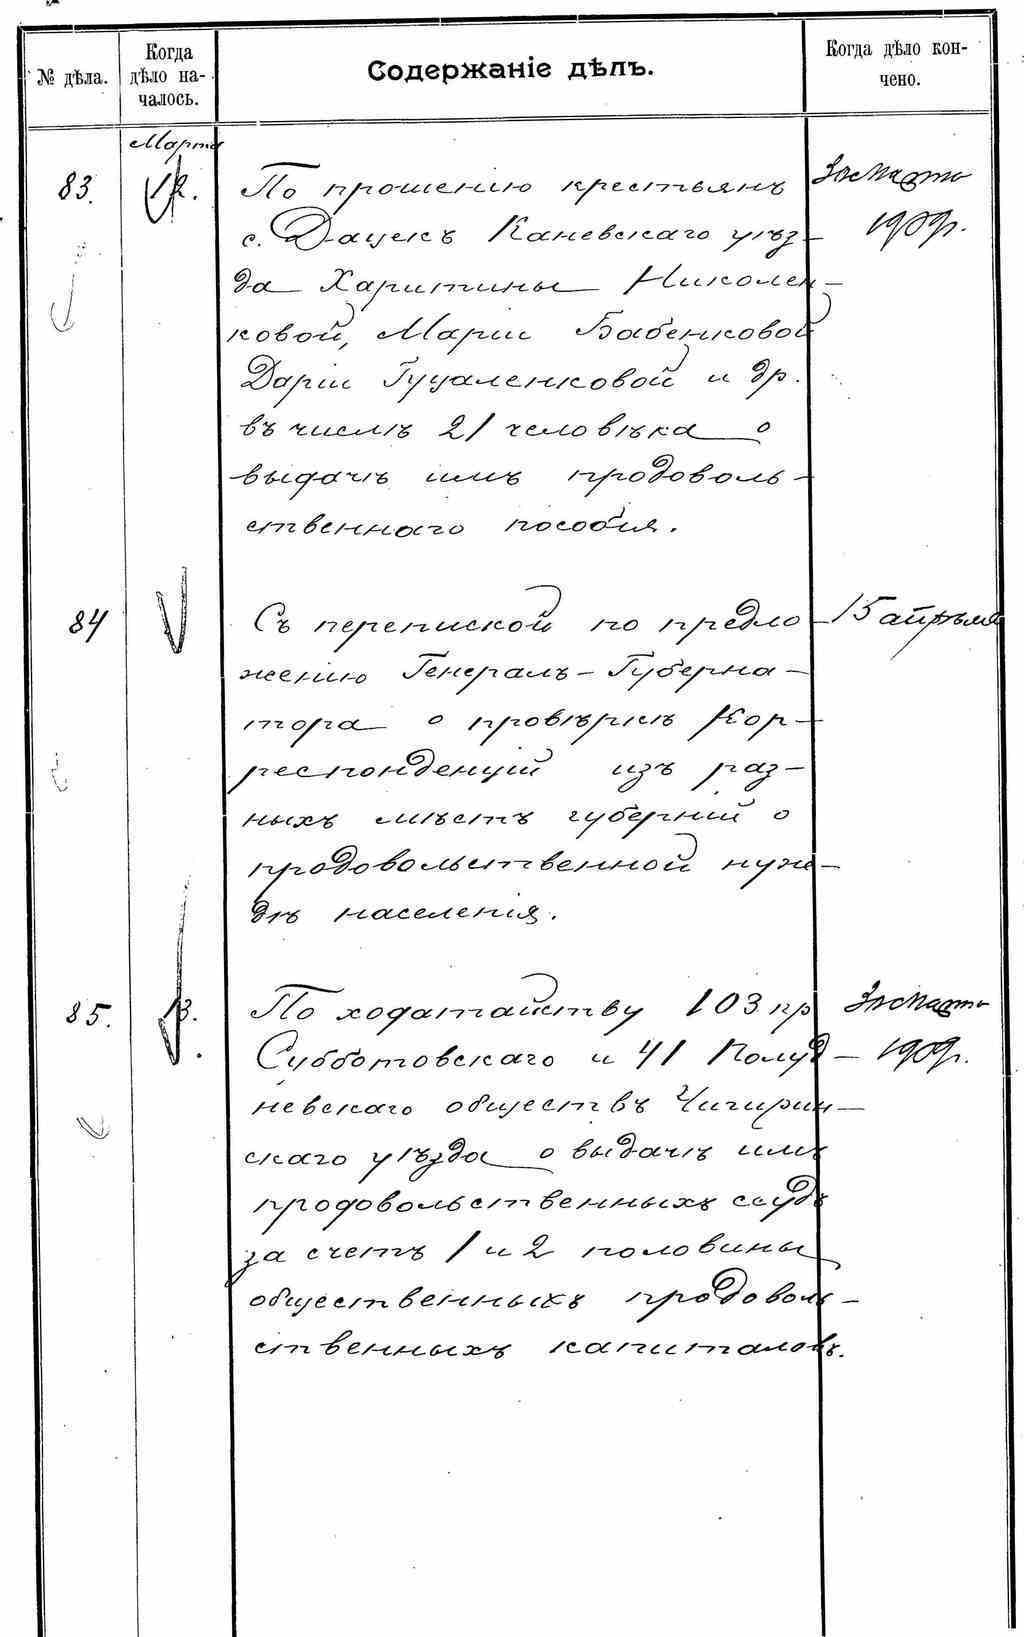 № дѣла.
Когда
дѣло на-
чалось.
Содержаніе дѣлъ.
Когда дѣло кон-
чено.
Марта
83.
12.
По прошенію крестьянъ
30 Марта
с. Дацекъ Каневскаго уѣз-
1909г.
да Харитины Николен-
ковой, Маріи Бабенковой
Даріи Гуцаленковой и др.
въ числѣ 21 человѣка о
выдачѣ имъ продоволь-
ственнаго пособія.
84
Съ перепиской по предло-
15 апрѣля
женію Генералъ-Губерна-
тора о провѣркѣ Кор-
респонденцій изъ раз-
ныхъ мѣстъ губерніи о
продовольственной нуж-
дѣ населенія.
85.
13.
По ходатайству 103 кр
30 Марта
Субботовскаго и 41 Полуд-
1909г.
невскаго обществъ Чигирин-
скаго уѣзда о выдачѣ имъ
продовольственныхъ ссудъ
за счетъ 1 и 2 половины
общественныхъ продоволь-
ственныхъ капиталовъ.